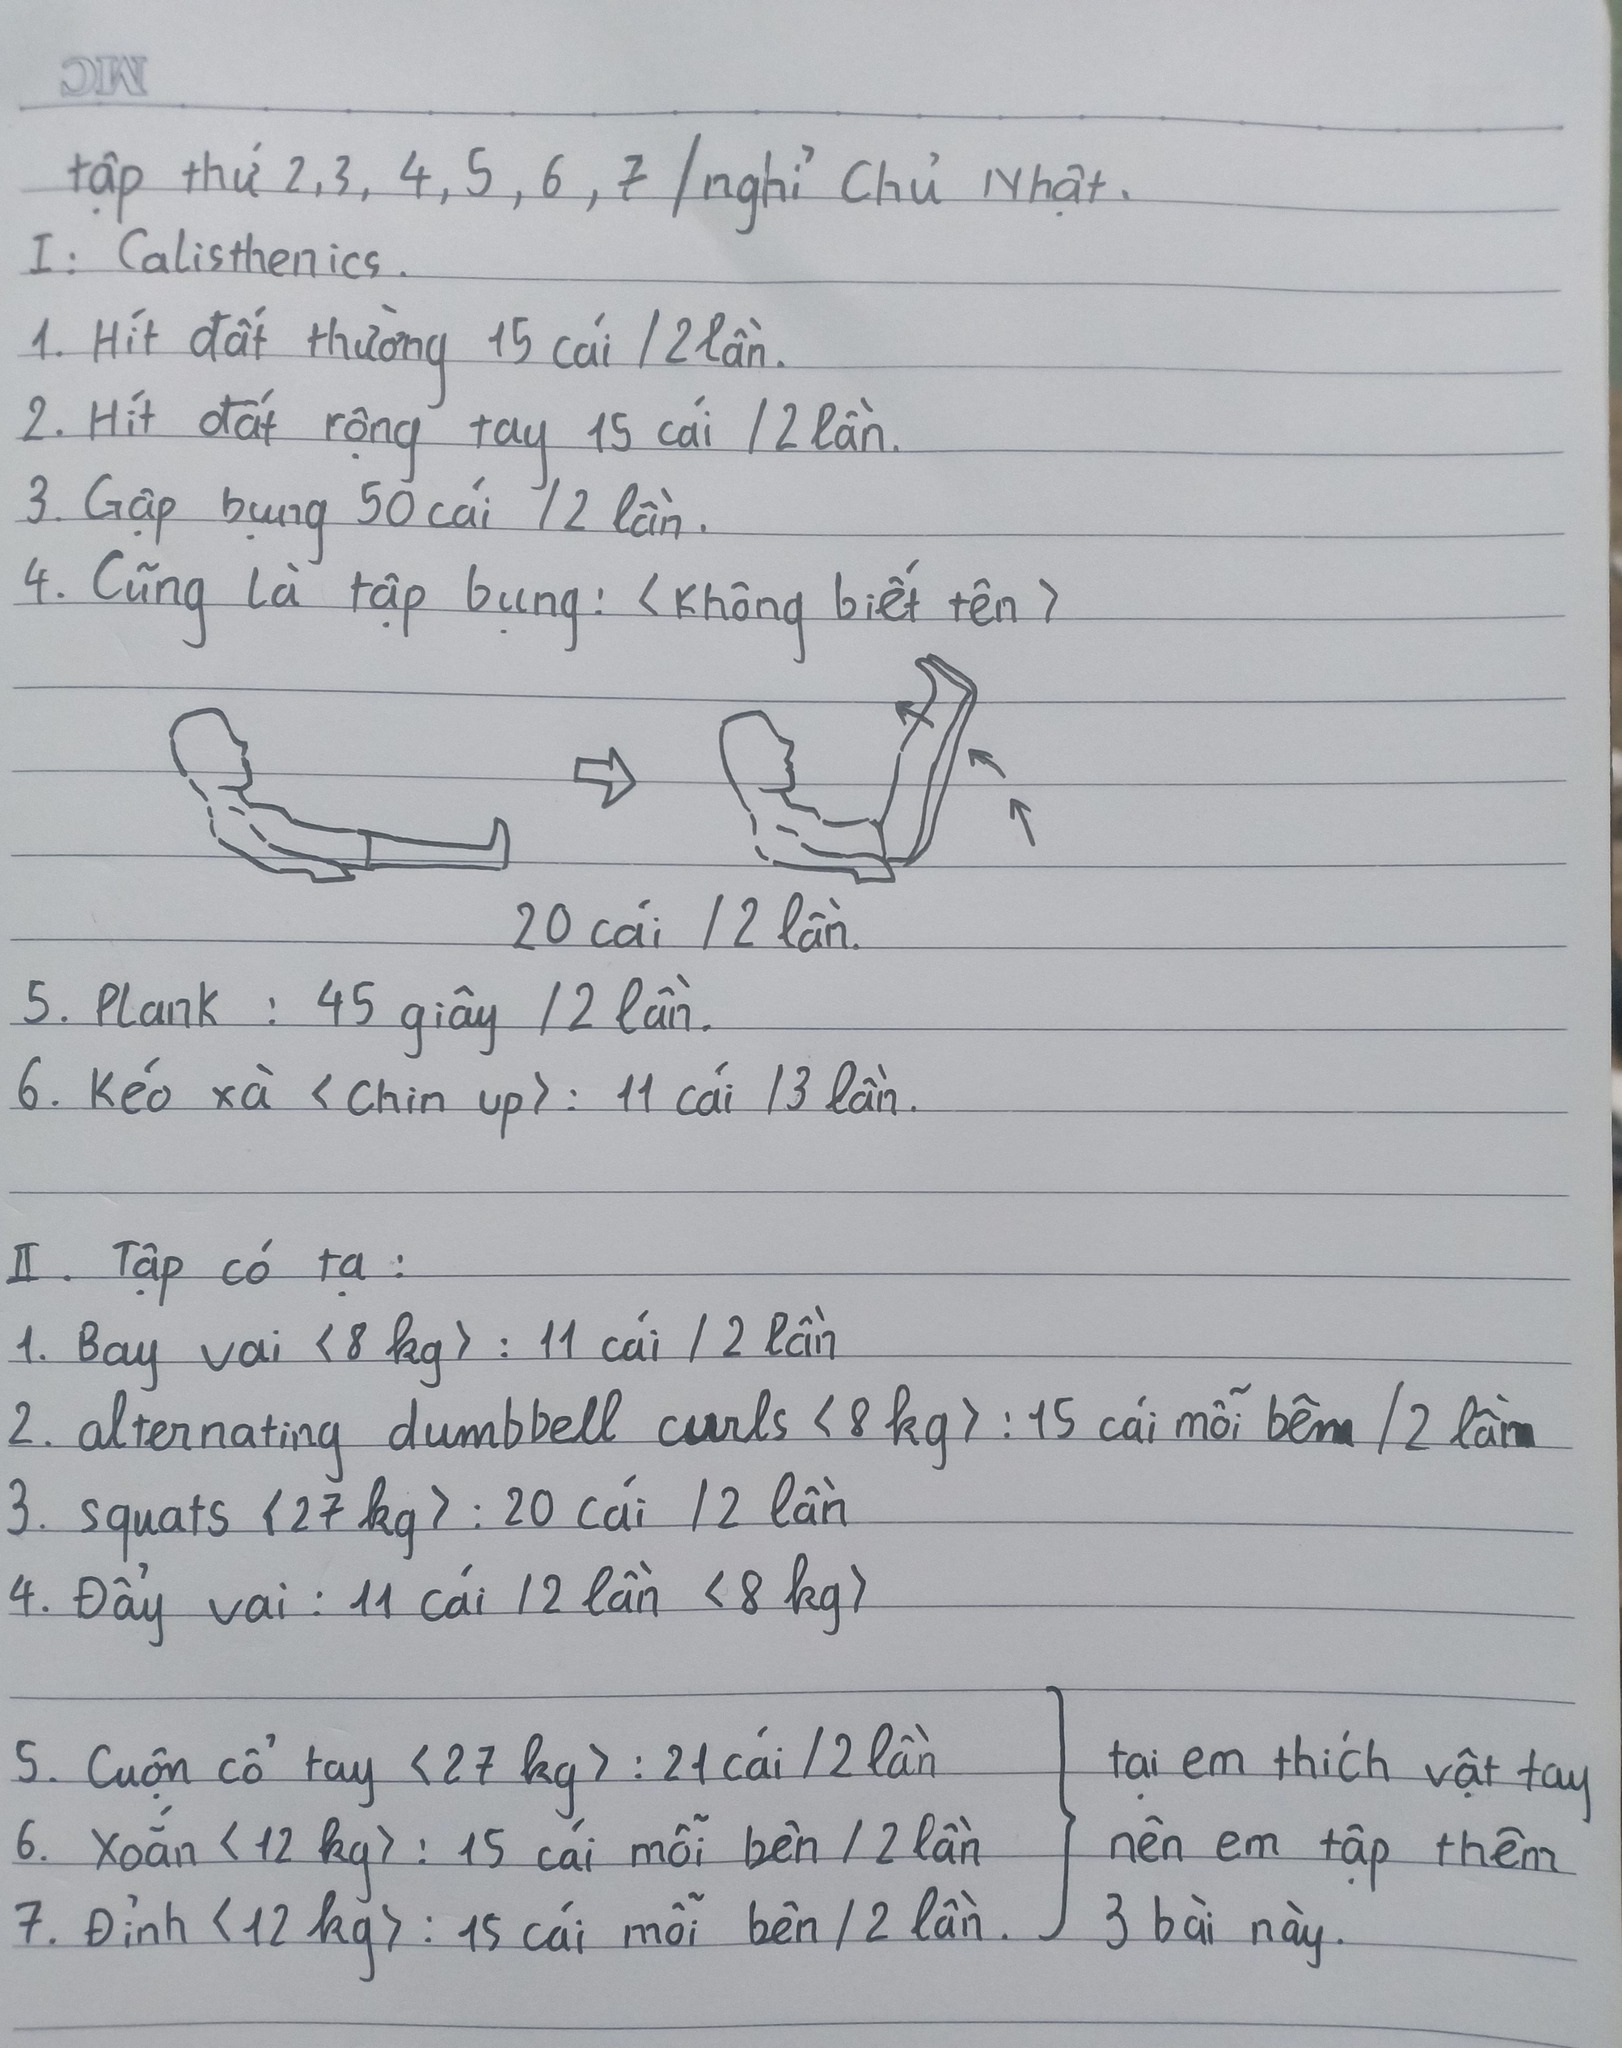 MC
tập thứ 2,3, 4, 5, 6, 7 / nghỉ Chủ Nhật.
I: Calisthenics.
1. Hít đất thường 15 cái / 2 lần.
2. Hít đất rộng tay 15 cái / 2 lần.
3. Gập bụng 50 cái / 2 lần.
4. Cũng là tập bụng: <Không biết tên>
20 cái / 2 lần.
5. Plank : 45 giây / 2 lần.
6. Kéo xà <Chin up>: 11 cái / 3 lần.
II. Tập có tạ :
1. Bay vai <8 kg> : 11 cái / 2 lần
2. alternating dumbbell curls <8 kg> : 15 cái mỗi bên / 2 lần
3. squats <27 kg> : 20 cái / 2 lần
4. Đẩy vai : 11 cái / 2 lần <8 kg>
5. Cuộn cổ tay <27 kg> : 21 cái / 2 lần
6. Xoắn <12 kg> : 15 cái mỗi bên / 2 lần
7. Đỉnh <12 kg> : 15 cái mỗi bên / 2 lần.
tại em thích vật tay
nên em tập thêm
3 bài này.